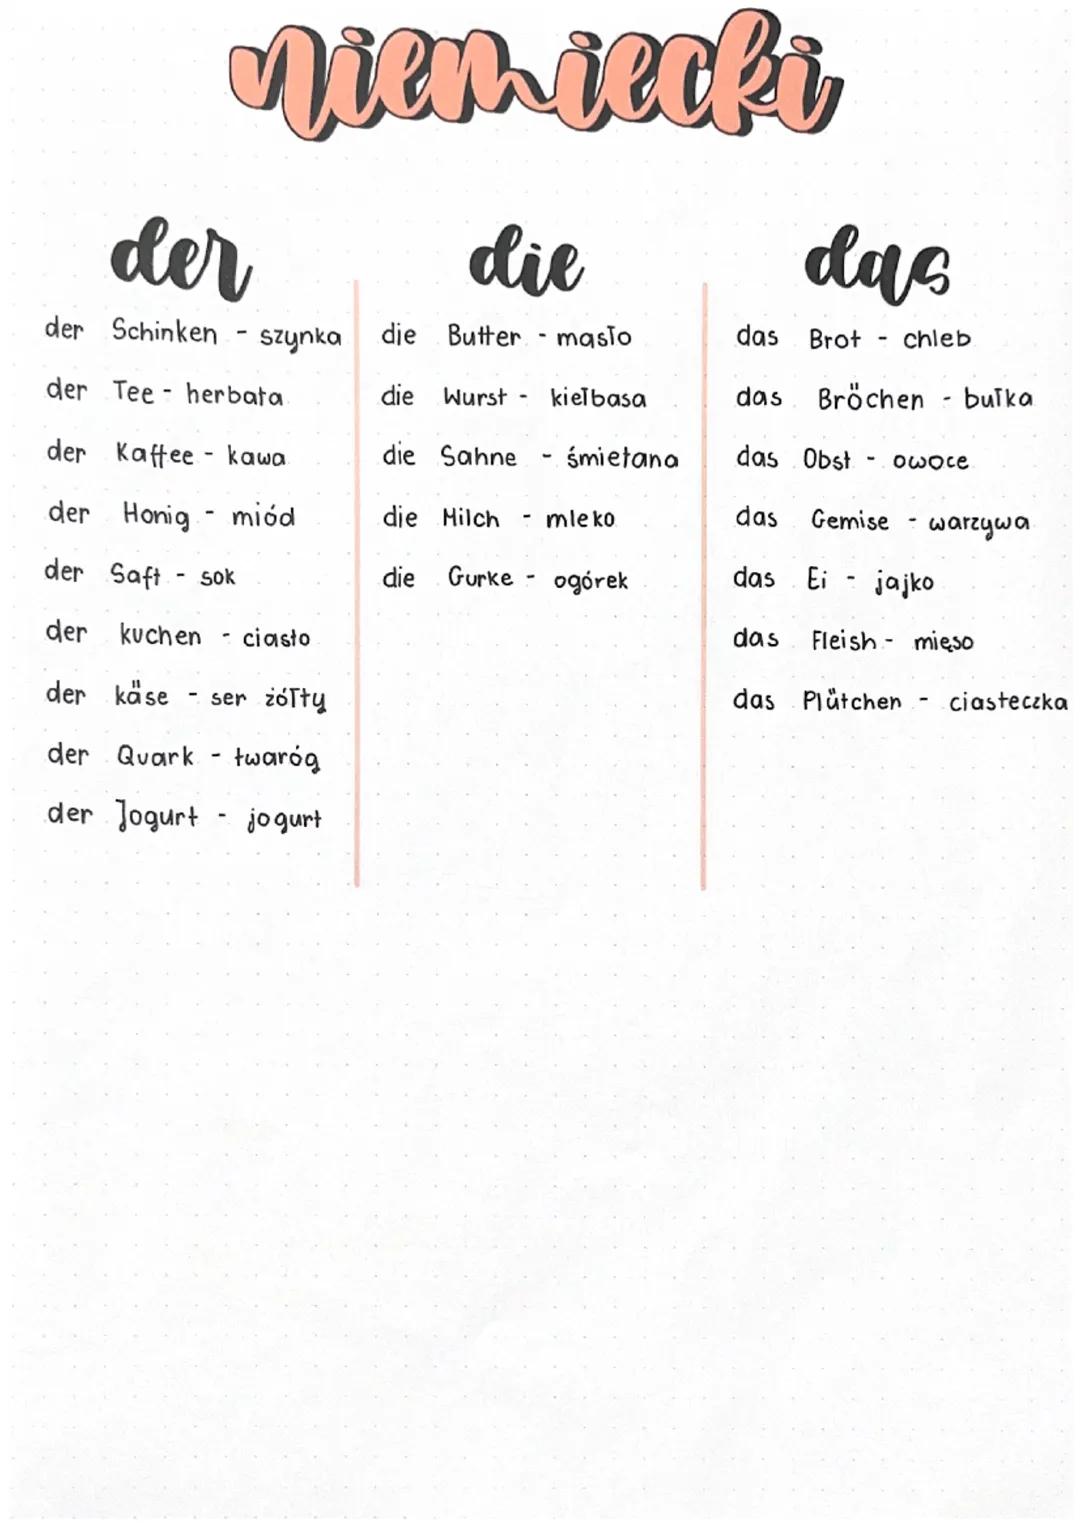 niemiecki
der
der Schinken - szynka
der Tee - herbata
der Kaffee - kawa
der Honig - miód
der Saft - sok
der kuchen - ciasto
der käse - ser żółty
der Quark - twaróg
der Jogurt - jogurt
die
die Butter - masło
die Wurst - kiełbasa
die Sahne - śmietana
die Milch - mleko
die Gurke - ogórek
das
das Brot - chleb
das Bröchen - bułka
das Obst - owoce
das Gemise - warzywa
das Ei - jajko
das Fleish - mięso
das Plütchen - ciasteczka